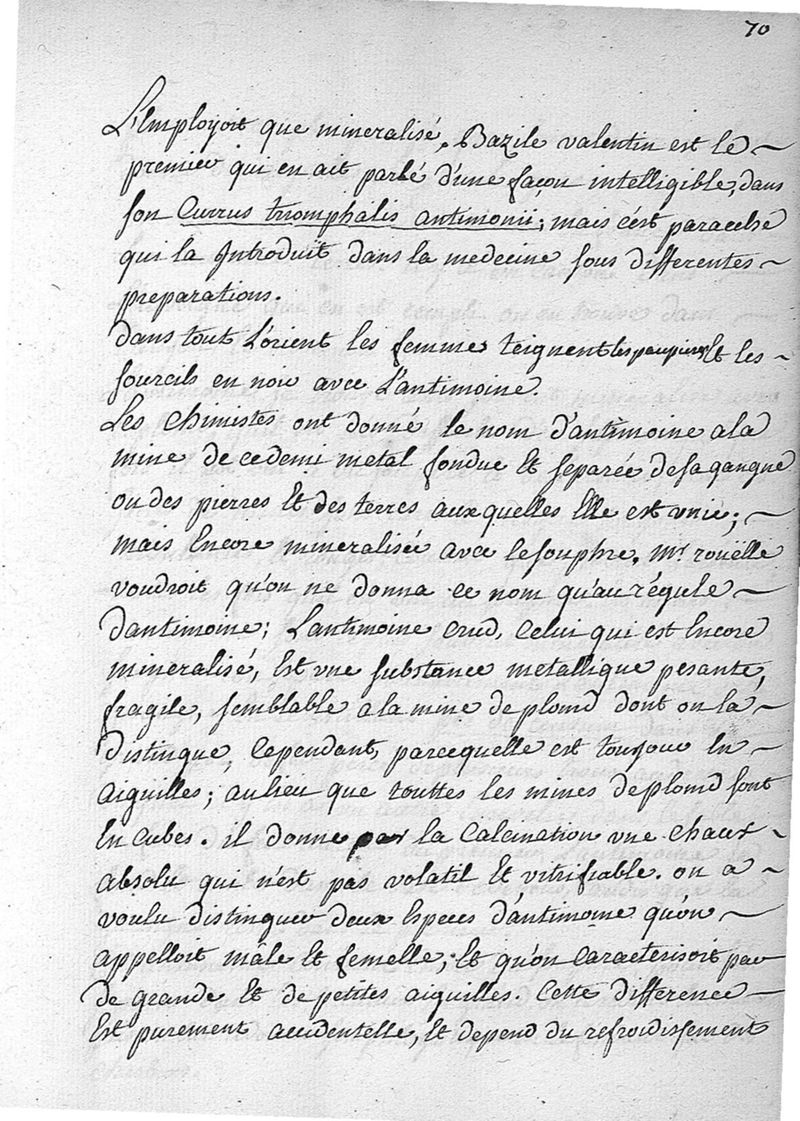 70
L'Employoit que mineralisé. Bazile valentin est le
premier qui en ait parlé d'une façon intelligible, dans
son Currus triomphalis antimonii; mais c'est paracelse
qui la Introduit dans la medecine sous differentes
preparations.
dans tout L'orient les femmes teignent les paupieres Et les
sourcils en noir avec L'antimoine.
Les chimistes ont donné le nom d'antimoine a la
mine de ce demi metal fondue Et separée de sa gangue
ou des pierres Et des terres aux quelles Elle est unie;
mais Encore mineralisée avec le souphre. Mr. rouëlle
voudroit qu'on ne donna ce nom qu'au régule
d'antimoine; L'antimoine crud, Celui qui est Encore
mineralisé, Est une substance metallique pesante,
fragile, semblable a la mine de plomd dont on la
distingue, Cependant, parcequelle est toujour En
aiguilles; au lieu que touttes les mines de plomd sont
En cubes. il donne par la Calcination une chaux
absolu qui n'est pas volatil Et vitrifiable. on a
voulu distinguer deux Especes d'antimoine qu'on
appelloit mâle Et femelle; Et qu'on Caracterisoit par
de grande Et de petites aiguilles. Cette difference
Est purement accidentelle, Et depend du refroidissement